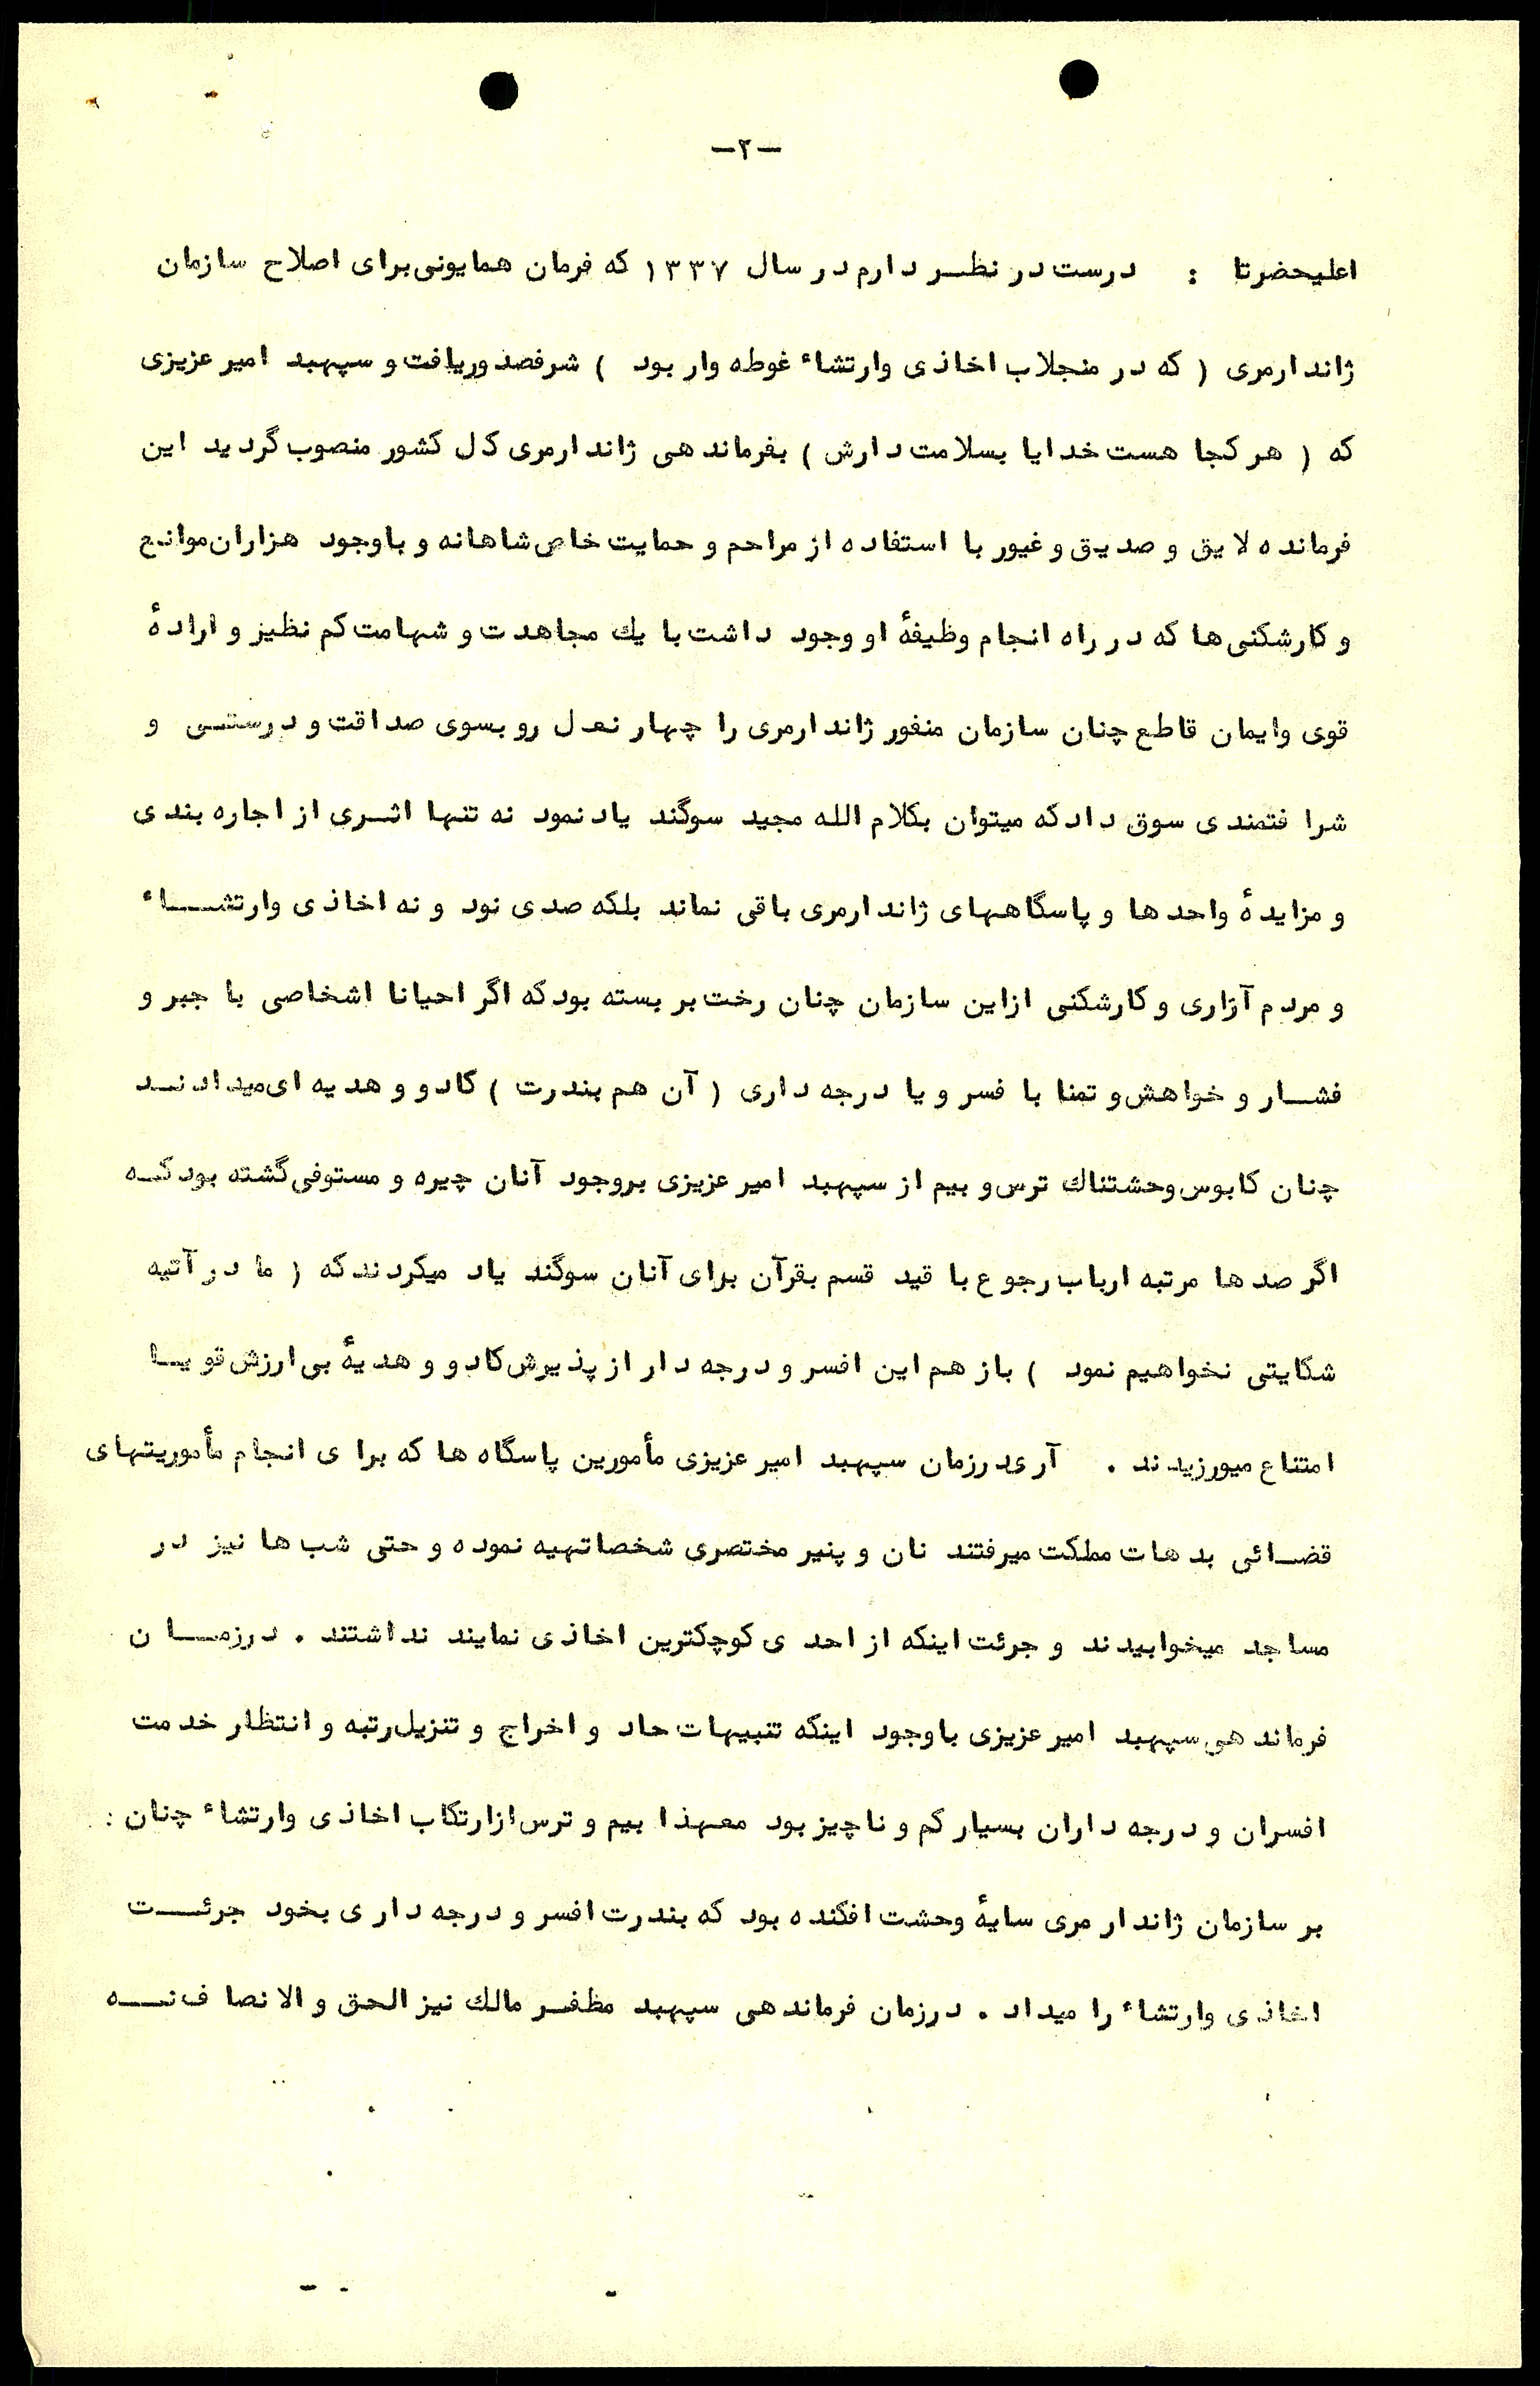 -۲-
اعلیحضرتا : درست در نظر دارم در سال ۱۳۳۷ که فرمان همایونی برای اصلاح سازمان
ژاندارمری ( که در منجلاب اخاذی وارتشاء غوطه وار بود ) شرفصدوریافت و سپهبد امیر عزیزی
که ( هر کجا هست خدایا بسلامت دارش ) بفرماندهی ژاندارمری کل کشور منصوب گردید این
فرمانده لایق و صدیق و غیور با استفاده از مراحم و حمایت خاص شاهانه و باوجود هزاران موانع
و کارشکنی ها که در راه انجام وظیفهٔ او وجود داشت با یك مجاهدت و شهامت کم نظیر و ارادهٔ
قوی وایمان قاطع چنان سازمان منفور ژاندارمری را چهار نعل رو بسوی صداقت و درستی و
شرافتمندی سوق داد که میتوان بکلام الله مجید سوگند یاد نمود نه تنها اثری از اجاره بندی
و مزایدهٔ واحدها و پاسگاههای ژاندارمری باقی نماند بلکه صدی نود و نه اخاذی وارتشاء
و مردم آزاری و کارشکنی ازاین سازمان چنان رخت بر بسته بود که اگر احیانا اشخاصی با جبر و
فشار و خواهش و تمنا با فسر و یا درجه داری ( آن هم بندرت ) کادو و هدیه ای میدادند
چنان کابوس وحشتناك ترس و بیم از سپهبد امیر عزیزی بروجود آنان چیره و مستوفی گشته بود که
اگر صدها مرتبه ارباب رجوع با قید قسم بقرآن برای آنان سوگند یاد میکردند که ( ما در آتیه
شکایتی نخواهیم نمود ) باز هم این افسر و درجه دار از پذیرش کادو و هدیهٔ بی ارزش قویا
امتناع میورزیدند . آری درزمان سپهبد امیر عزیزی مأمورین پاسگاه ها که برای انجام مأموریتهای
قضائی بدهات مملکت میرفتند نان و پنیر مختصری شخصا تهیه نموده و حتی شب ها نیز در
مساجد میخوابیدند و جرئت اینکه از احدی کوچکترین اخاذی نمایند نداشتند . درزمان
فرماندهی سپهبد امیر عزیزی باوجود اینکه تنبیهات حاد و اخراج و تنزیل رتبه و انتظار خدمت
افسران و درجه داران بسیار کم و ناچیز بود معهذا بیم و ترس ازارتکاب اخاذی وارتشاء چنان :
بر سازمان ژاندارمری سایهٔ وحشت افکنده بود که بندرت افسر و درجه داری بخود جرئت
اخاذی وارتشاء را میداد . درزمان فرماندهی سپهبد مظفر مالك نیز الحق و الانصاف نه